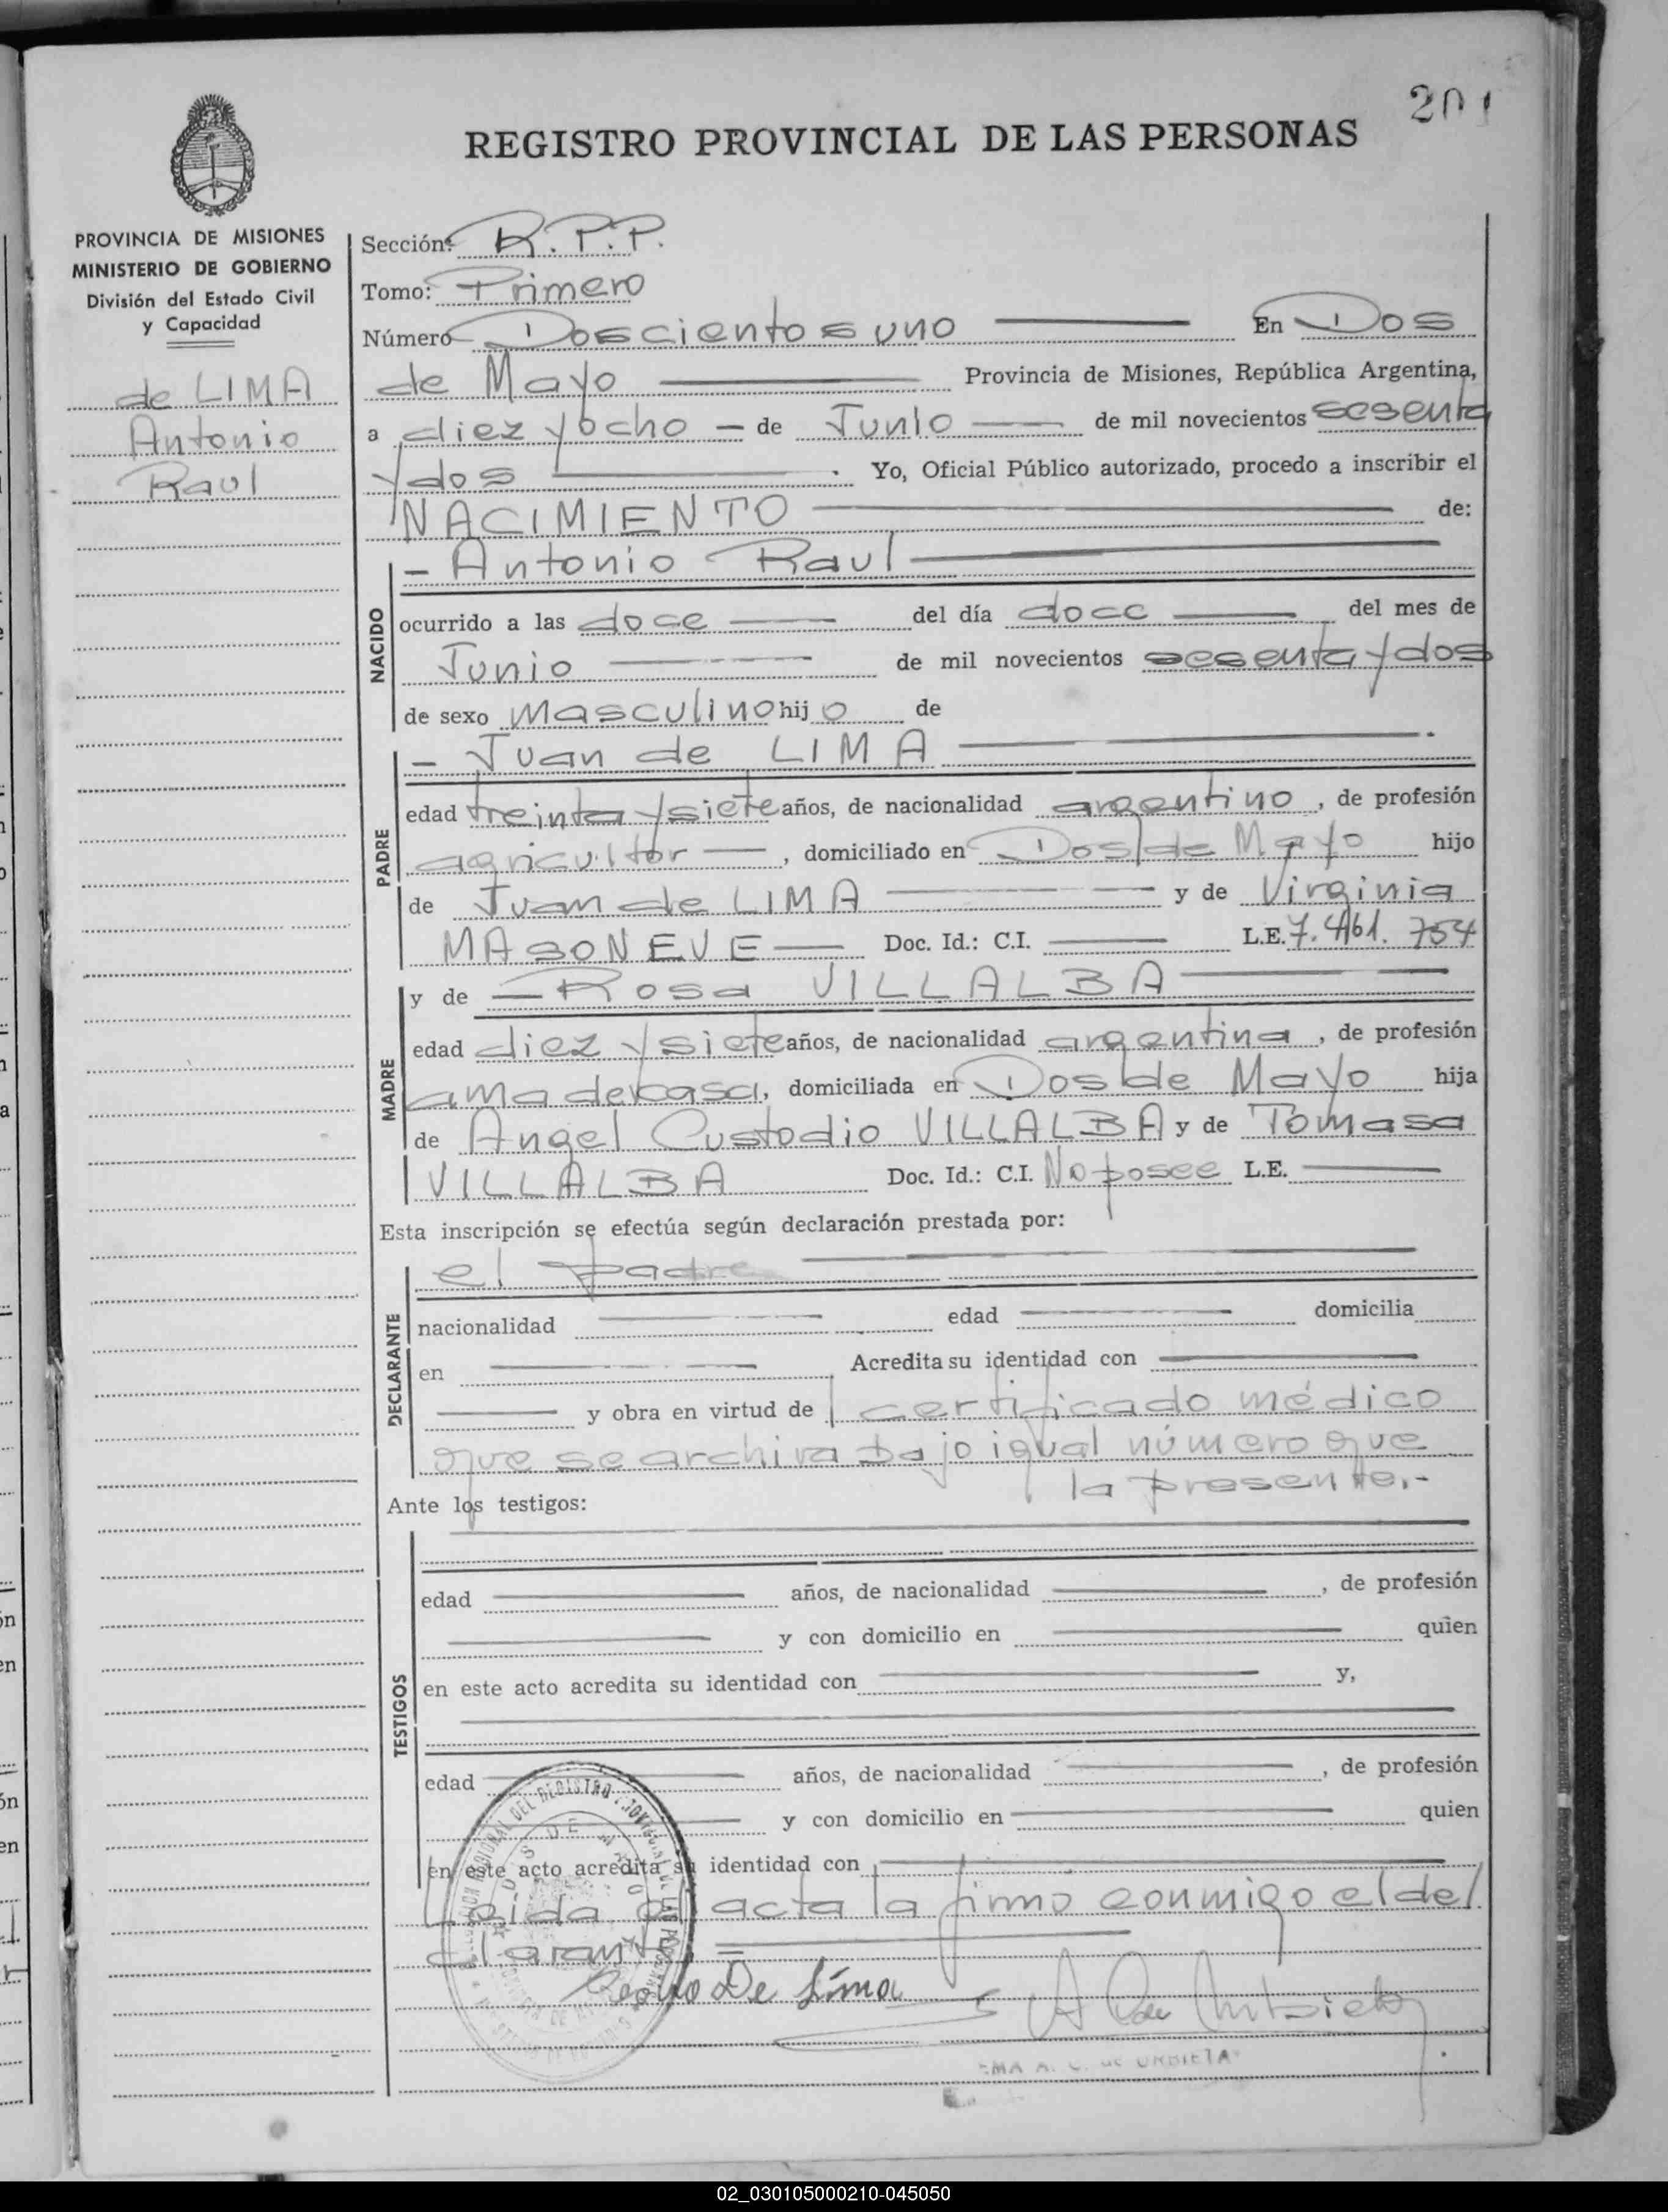 201
REGISTRO PROVINCIAL DE LAS PERSONAS
PROVINCIA DE MISIONES
MINISTERIO DE GOBIERNO
División del Estado Civil
y Capacidad
de LIMA
Antonio
Raul
Sección: R.P.P.
Tomo: Primero
Número Doscientos uno En Dos
de Mayo Provincia de Misiones, República Argentina,
a diez y ocho - de Junio de mil novecientos sesenta
y dos . Yo, Oficial Público autorizado, procedo a inscribir el
NACIMIENTO de:
- Antonio Raul
NACIDO
ocurrido a las doce del día doce del mes de
Junio de mil novecientos sesenta y dos
de sexo masculino hijo de
- Juan de LIMA
PADRE
edad treinta y siete años, de nacionalidad argentino, de profesión
agricultor, domiciliado en Dos de Mayo hijo
de Juan de LIMA y de Virginia
MASONEVE Doc. Id.: C.I. L.E. 7.461.754
MADRE
y de - Rosa VILLALBA
edad diez y siete años, de nacionalidad argentina, de profesión
ama de casa, domiciliada en Dos de Mayo hija
de Angel Custodio VILLALBA y de Tomasa
VILLALBA Doc. Id.: C.I. No posee L.E.
Esta inscripción se efectúa según declaración prestada por:
el padre
DECLARANTE
nacionalidad edad domicilia
en Acredita su identidad con
y obra en virtud de certificado médico
que se archiva bajo igual número que
la presente.-
Ante los testigos:
TESTIGOS
edad años, de nacionalidad , de profesión
y con domicilio en quien
en este acto acredita su identidad con y,
edad años, de nacionalidad , de profesión
y con domicilio en quien
en este acto acredita su identidad con
Leida el acta la firmo conmigo el de
clarante
De Lima
DE URBIETA
02_030105000210-045050